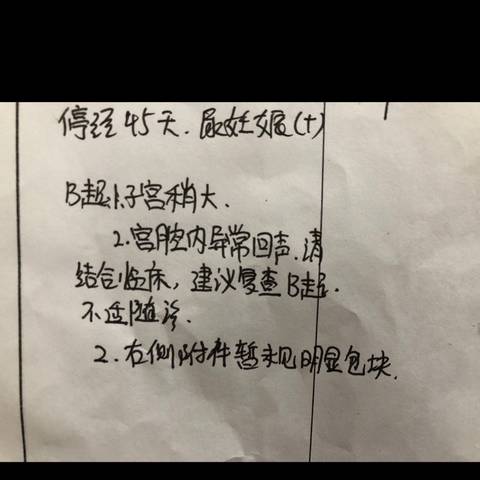 停经45天.尿妊娠(+)
B超:1.子宫稍大.
2.宫腔内异常回声.请
结合临床,建议复查B超.
不适随诊.
2.右侧附件暂未见明显包块.